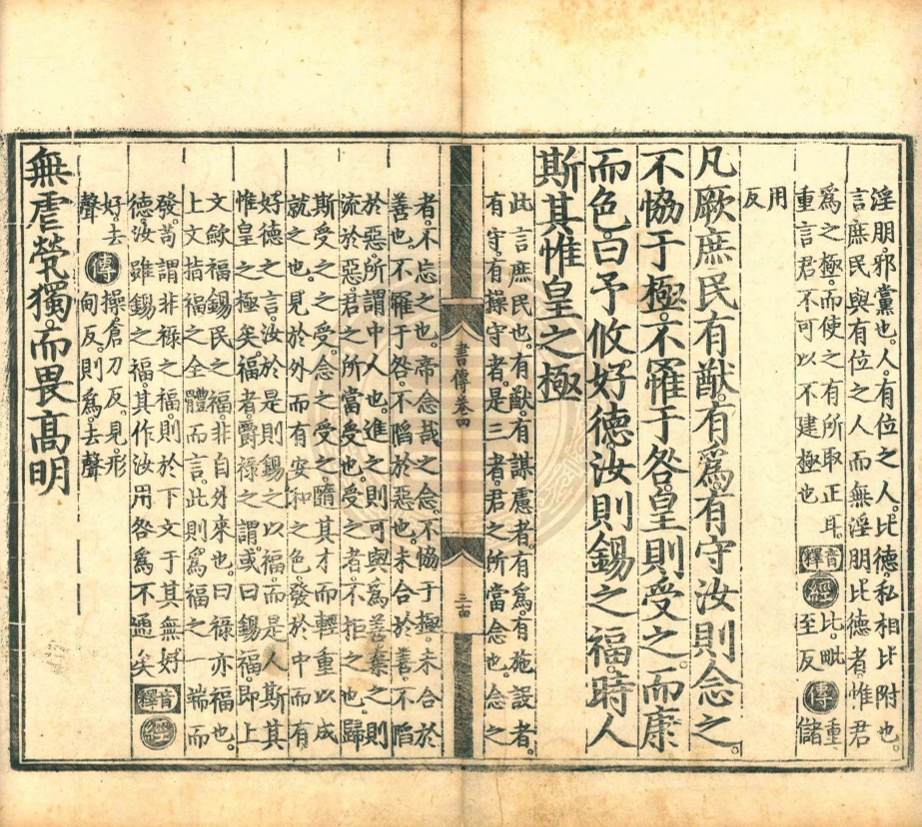 淫朋邪黨也。人有位之人。比德私相比附也。
言庶民與有位之人而無淫朋比德者惟君
為之極。而使之有所取正耳。
重言君不可以不建極也
音釋 經 比。毗至反 傳 重。儲
用反
凡厥庶民有猷。有為有守汝則念之。
不協于極。不罹于咎皇則受之。而康
而色。曰予攸好德汝則錫之福。時人
斯其惟皇之極
此言庶民也。有猷。有謀慮者。有為。有施設者。
有守。有操守者。是三者。君之所當念也。念之
書傳卷四
三十四
者。不忘之也。帝念哉之念。不協于極。未合於
善也。不罹于咎。不陷於惡也。未合於善。不陷
於惡。所謂中人也。進之則可與為善。棄之則
流於惡。君之所當受也。受之者。不拒之也。歸
斯受之之受。念之受之。隨其才而輕重以成
就之也。見於外而有安和之色。發於中而有
好德之言。汝於是則錫之以福。而是人斯其
惟皇之極矣。福者爵祿之謂。或曰錫福。即上
文斂福錫民之福。非自外來也。曰祿亦福也。
上文指福之全體而言。此則為福之一端而
發。苟謂非祿之福。則於下文于其無好
德。汝雖錫之福。其作汝用咎為不通矣
音釋 經
好。去聲 傳 操。倉刀反。見。形
甸反。則為。去聲
無虐煢獨。而畏高明